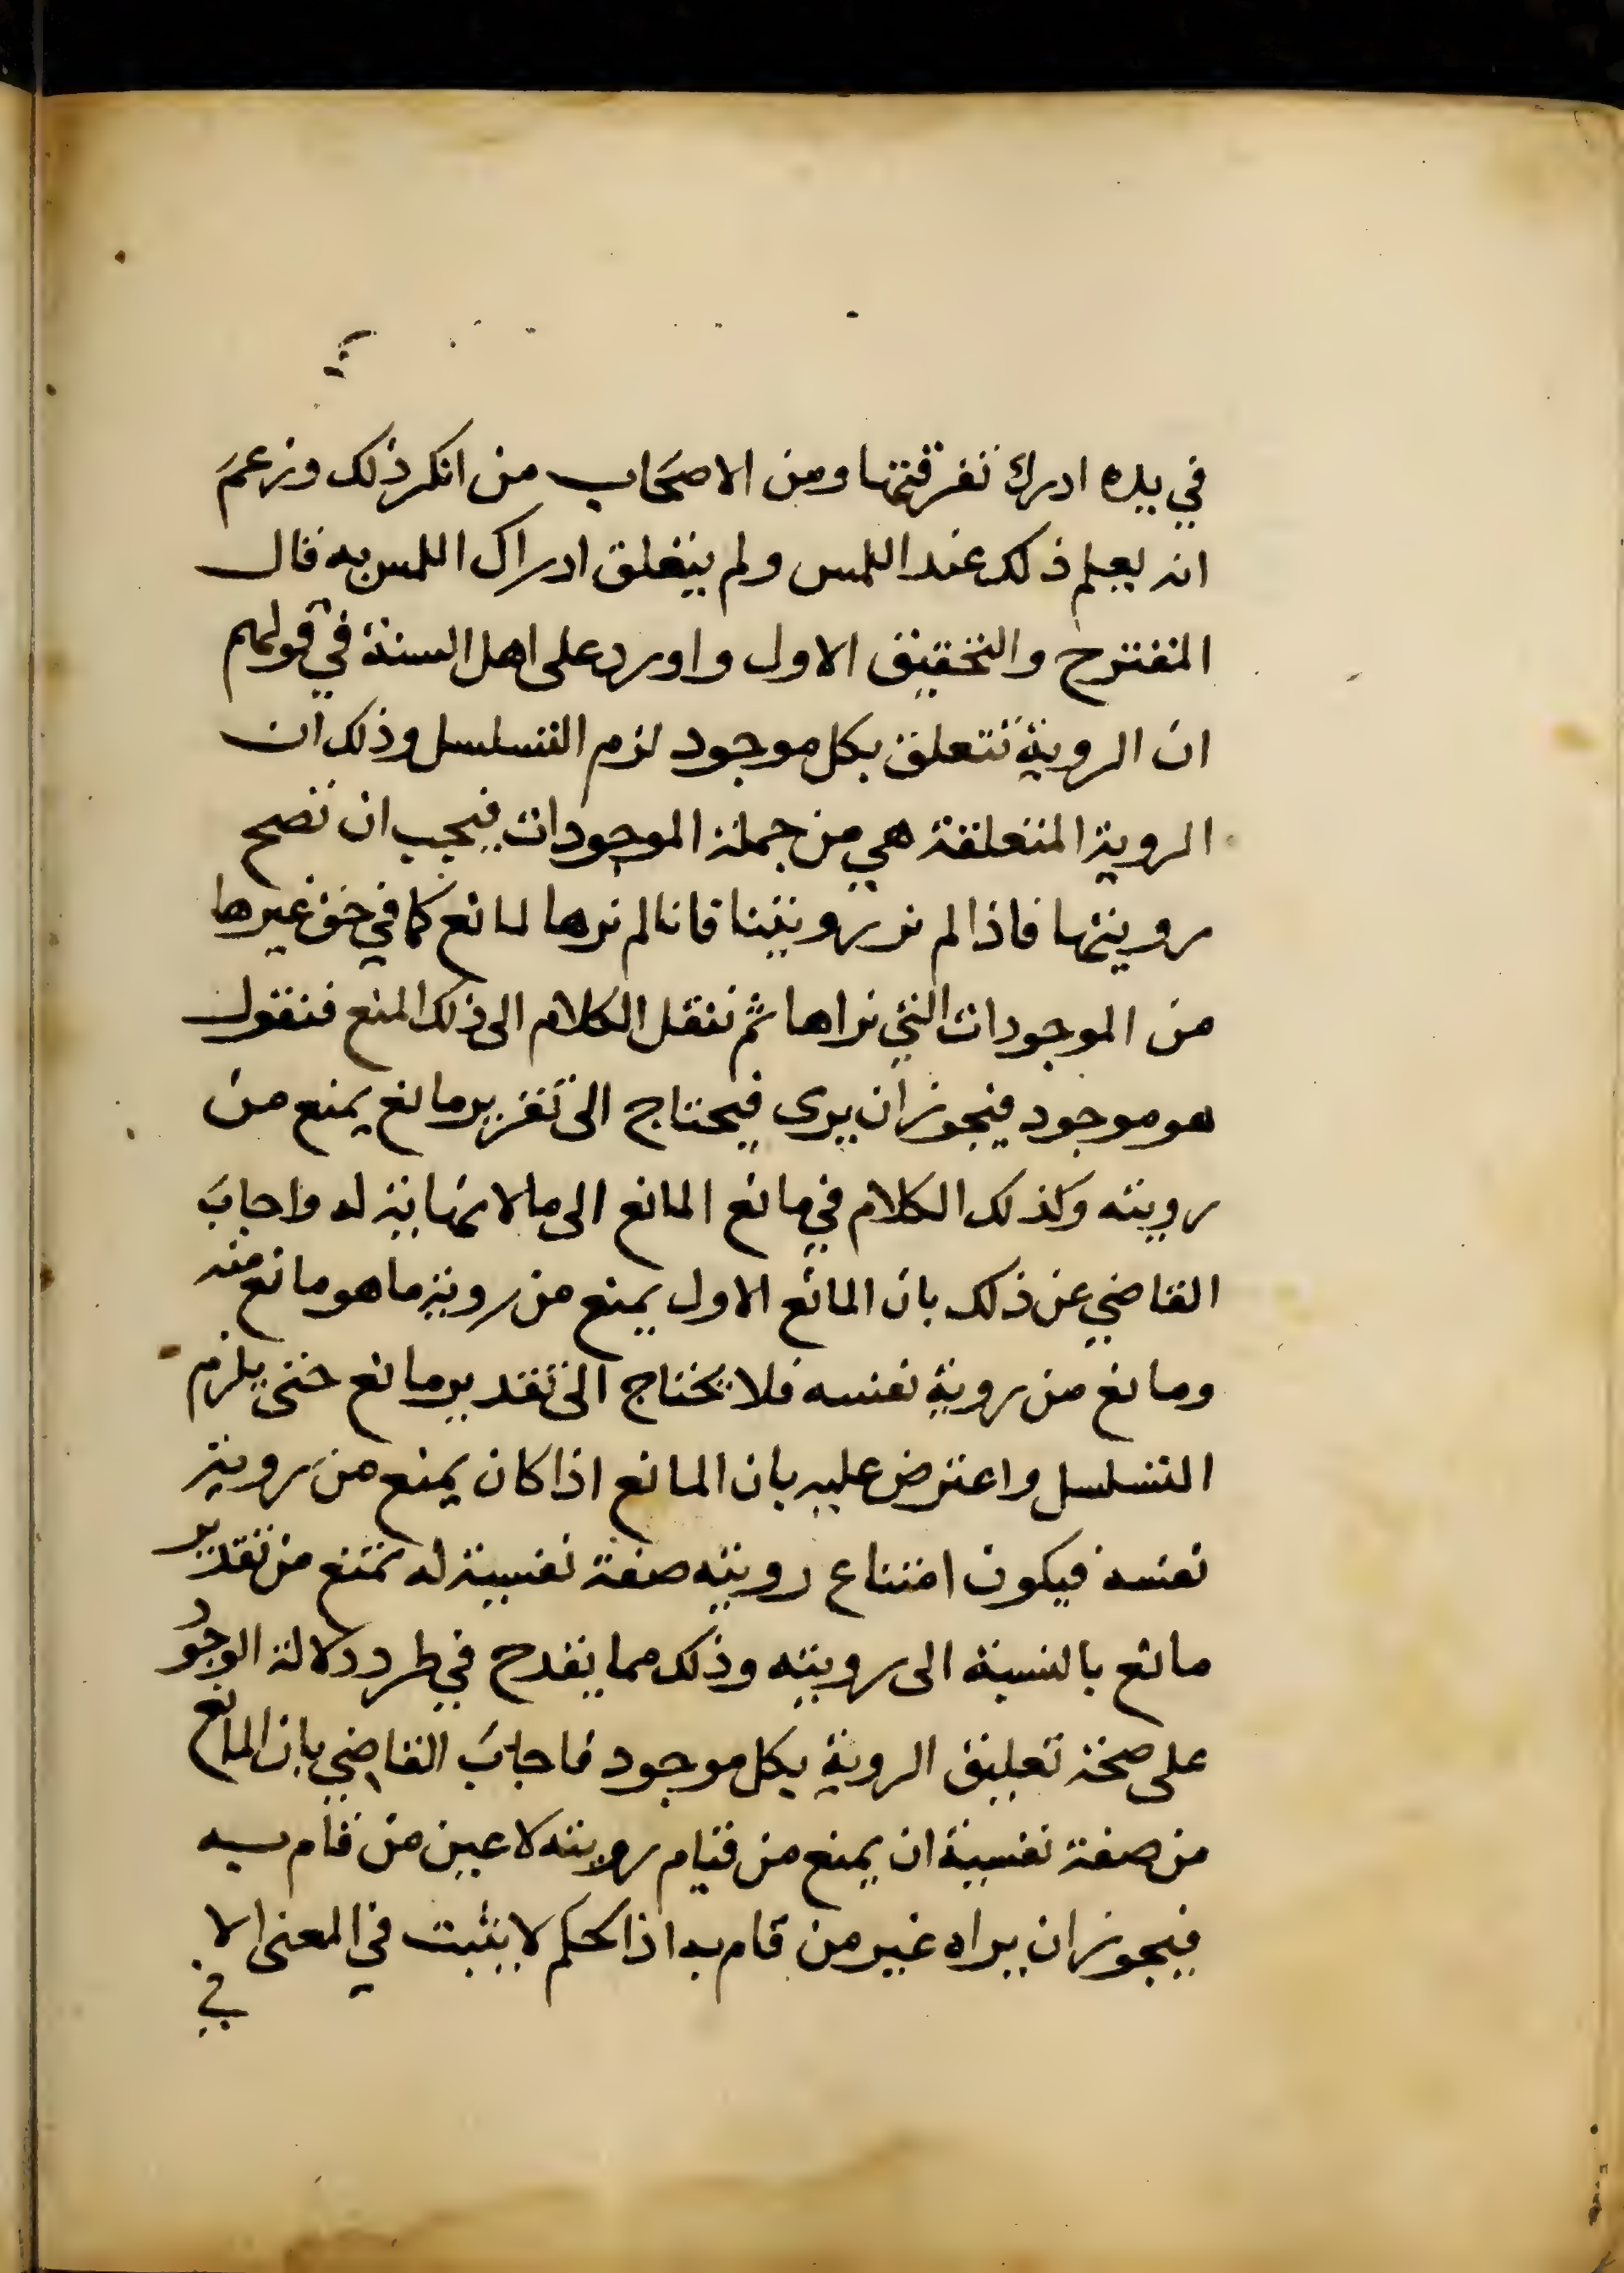 في يده ادرك تفرقتها ومن الاصحاب من انكر ذلك وزعم
انه يعلم ذلك عند اللمس ولم يتعلق ادراك اللمس به قال
المقترح والتحقيق الاول واورد على اهل السنة في قولهم
ان الروية تتعلق بكل موجود لزم التسلسل وذلك ان
الروية المتعلقة هي من جملة الموجودات فيجب ان تصح
رويتها فاذا لم نر رويتنا فانا لم نرها لمانع كما في حق غيرها
من الموجودات التي نراها ثم ننقل الكلام الى ذلك المنع فنقول
هو موجود فيجوز ان يرى فيحتاج الى تقرير مانع يمنع من
رويته وكذلك الكلام في مانع المانع الى ما لا نهاية له واجاب
القاضي عن ذلك بان المانع الاول يمنع من روية ما هو مانع منه
ومانع من روية نفسه فلا يحتاج الى تقدير مانع حتى يلزم
التسلسل واعترض عليه بان المانع اذا كان يمنع من روية
نفسه فيكون امتناع رويته صفة نفسية له تمنع من تقدير
مانع بالنسبة الى رويته وذلك مما يقدح في طرد دلالة الوجود
على صحة تعليق الروية بكل موجود فاجاب القاضي بان المانع
من صفة نفسية ان يمنع من قيام رويته لا عين من قام به
فيجوز ان يراه غير من قام به اذ الحكم لا يثبت في المعنى الا
في